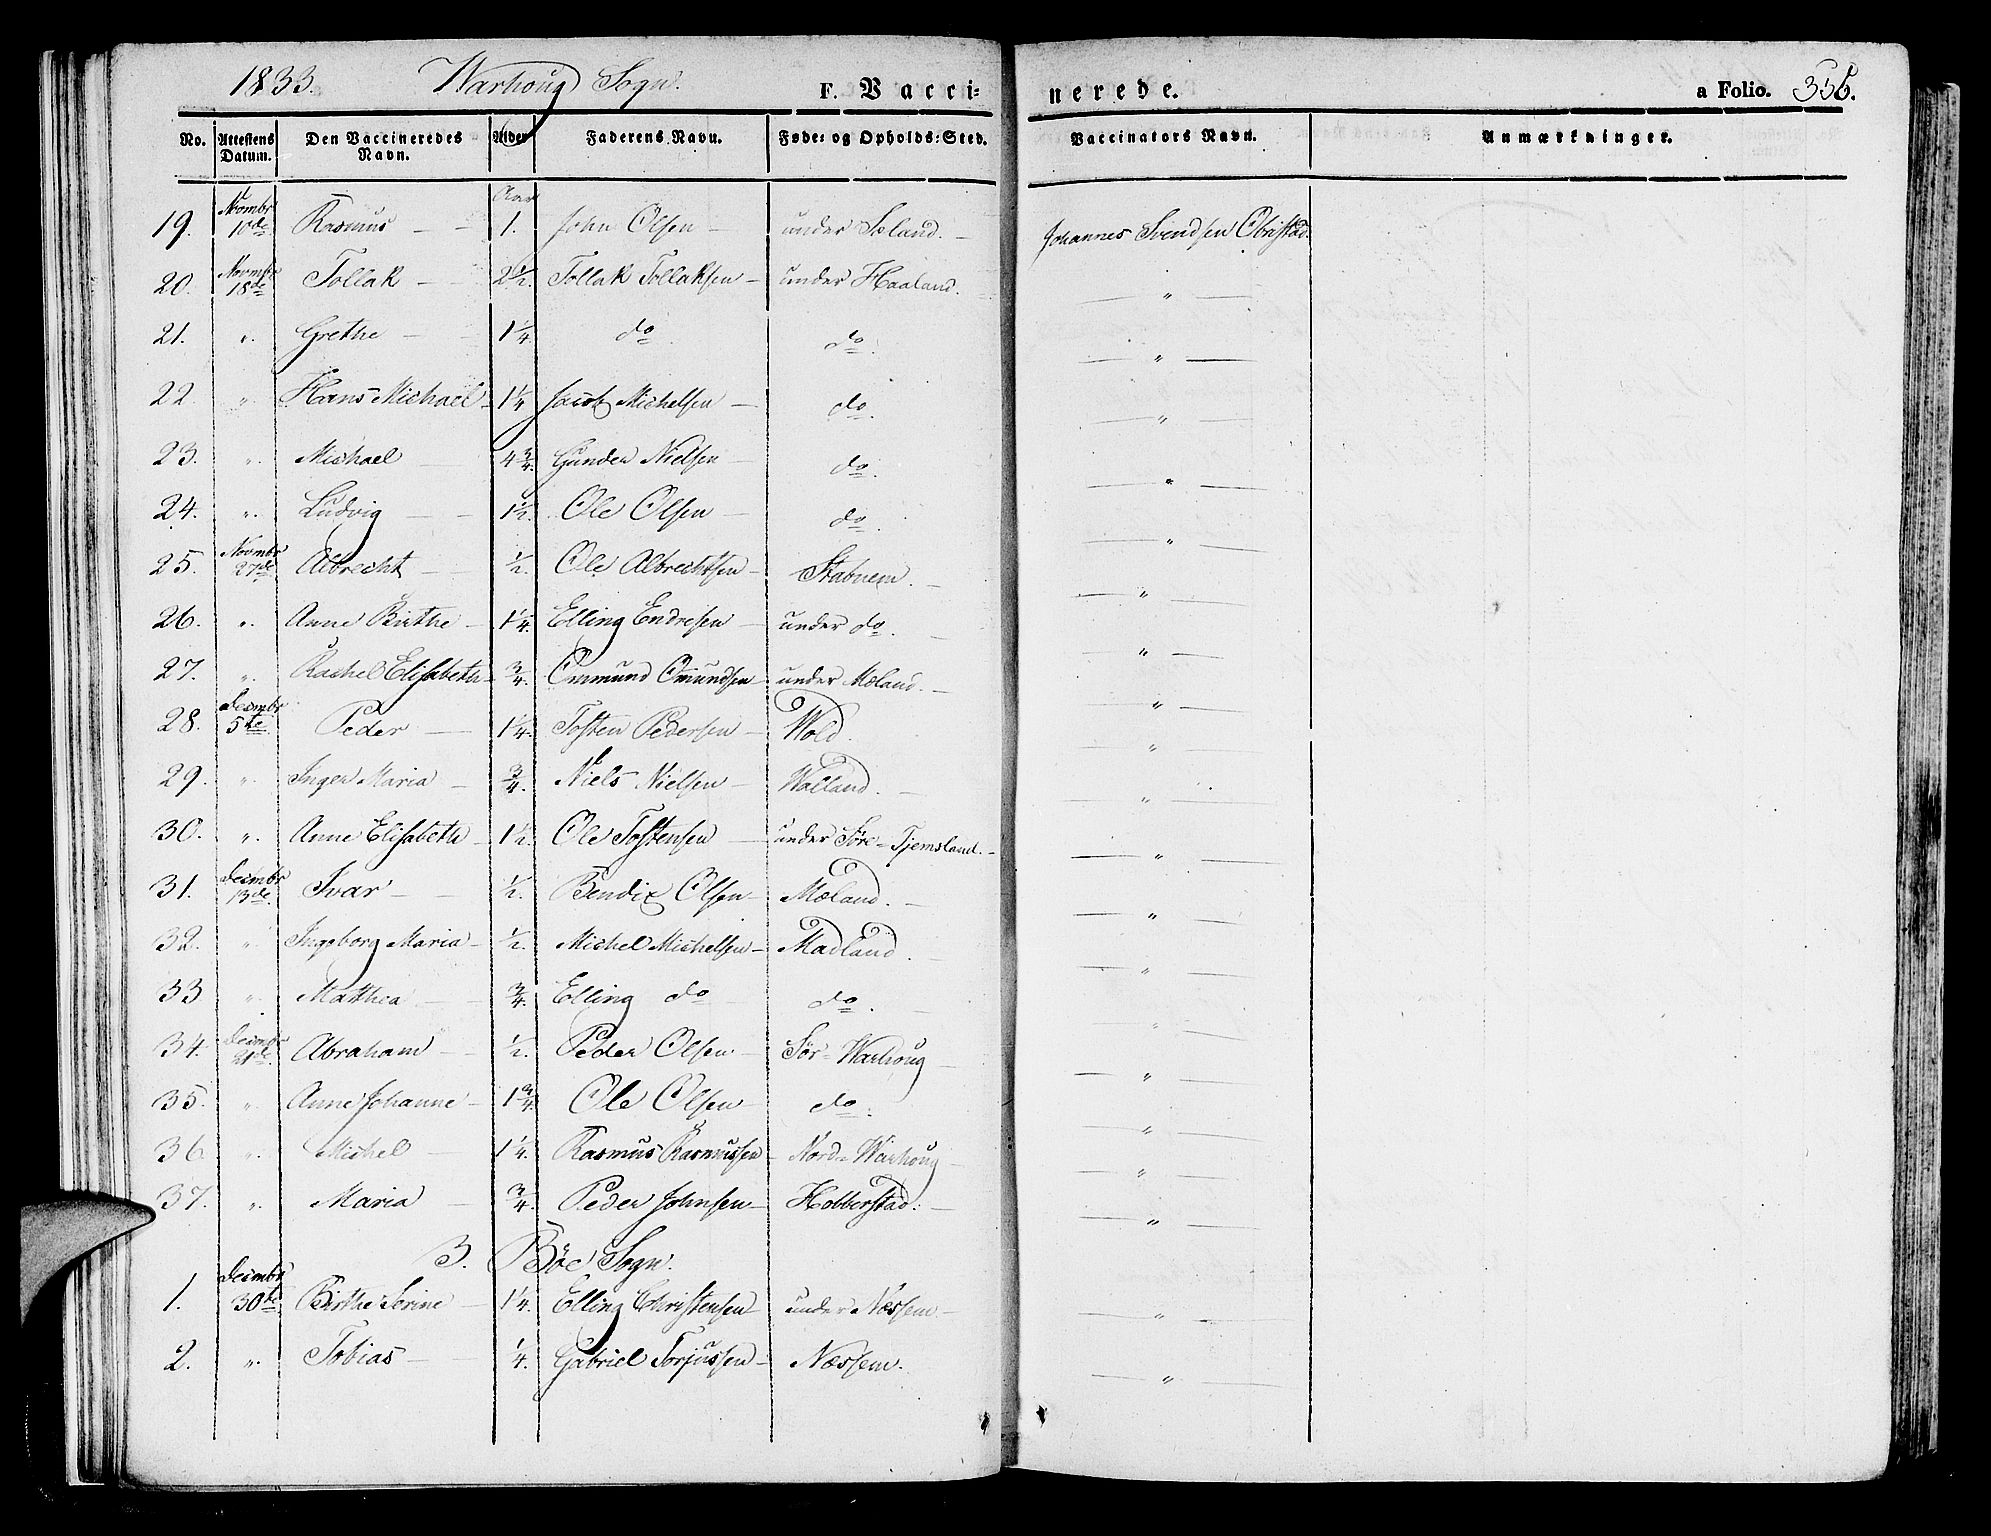 1833. Warhoug Sogn. F. Vacci= nerede. a Folio. 355.
No. Attestens Datum. Den Vaccineredes Navn. Alder Faderens Navn. Føde= og Opholds=Sted. Vaccinators Navn. Anmærkninger.
Aar
19. Novmbr 10de Rasmus 1. John Olsen under Johannes Svendsen Obristad.
20. Novmbr 18de Tollak 2½. Tollak Tollaksen under Haaland. "
21. ". Grethe 1¼ do do. "
22 ". Hans Michael 1¼ Jacob Michelsen do. "
23. ". Michael 4¾. Gunder Nielsen do. "
24. ". Ludvig 1½. Ole Olsen do. "
25. Novmbr 27de Albrecht ½. Ole Albrechtsen Stabnem. "
26. ". Anne Birthe 1¼. Elling Endresen under do. "
27. ". Rachel Elisabeth ¾. Ommund Omundsen under Mæland. "
28. Decmbr 5te Peder 1¼. Tosten Pedersen Wold. "
29. ". Inger Maria ¾. Niels Nielsen Walland. "
30. ". Anne Elisabeth 1½. Ole Tostensen under Søre=Tjemsland. "
31. Decmbr 13de. Ivar ½. Bendix Olsen Mæland. "
32. " Ingeborg Maria ½. Michel Michelsen Madland. "
33 ". Mathea ¾. Elling do do. "
34. Decmbr 21de. Abraham ½. Peder Olsen Sør=Warhoug "
35. ". Anne Johanne 1¾. Ole Olsen do. "
36 ". Michel 1¼. Rasmus Rasmussen Nord=Warhoug "
37. ". Maria ¾. Peder Johnsen Hobberstad. "
3. Böe Sogn.
1. Decmbr 30te Birthe Serine 1¼. Elling Christensen under Næssem "
2. ". Tobias ¼. Gabriel Torjussen Næssem. "